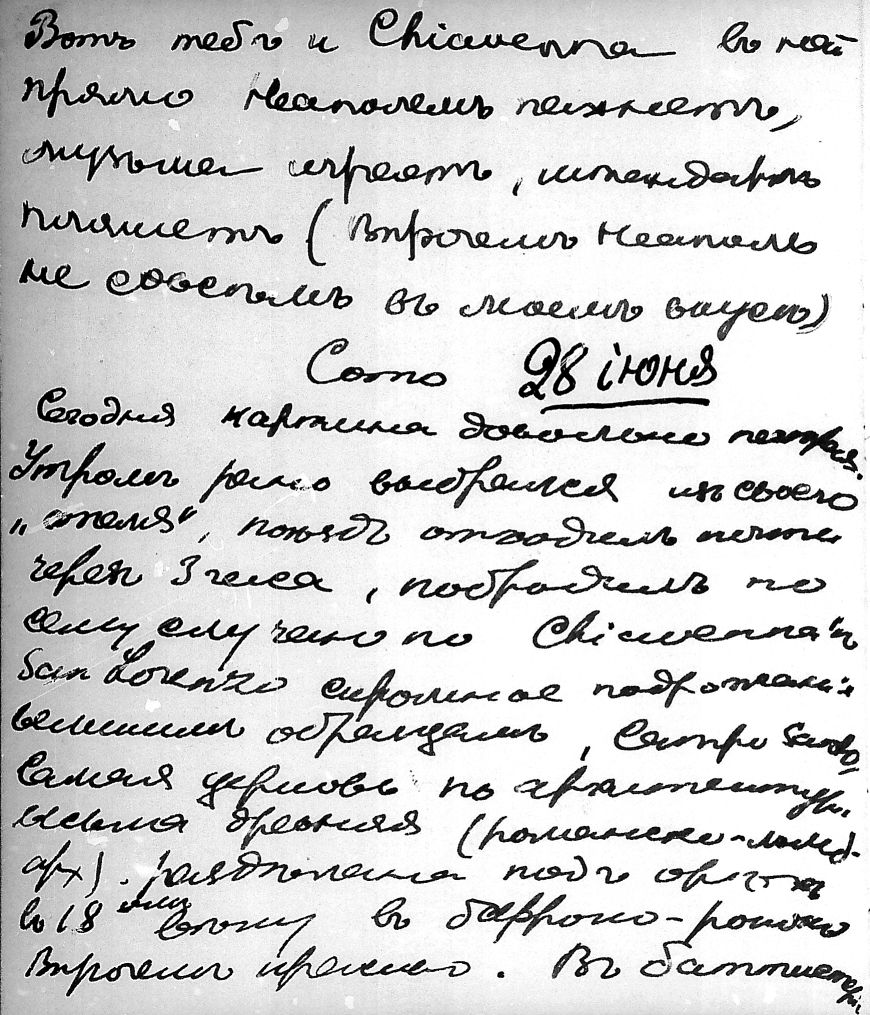 Вотъ тебѣ и Chiavenna въ ней
прямо Неаполемъ пахнетъ,
музыка играетъ, штандартъ
пляшетъ (впрочемъ Неаполь
не совсѣмъ въ моемъ вкусѣ)
Como 28 іюня
Сегодня картина довольно пестрая.
Утромъ рано выбрался изъ своего
„отеля“, поѣздъ отходилъ почти
черезъ 3 часа, побродилъ по
сему случаю по Chiavenna'ѣ
San Lorenzo скромное подражаніе
великимъ образцамъ, Campo Santo,
Самая церковь по архитектур.
весьма древняя (романско-ломб.
арх). подъ
въ 18 омъ вѣку въ барроко-рококо
Впрочемъ красиво. Въ баптистері